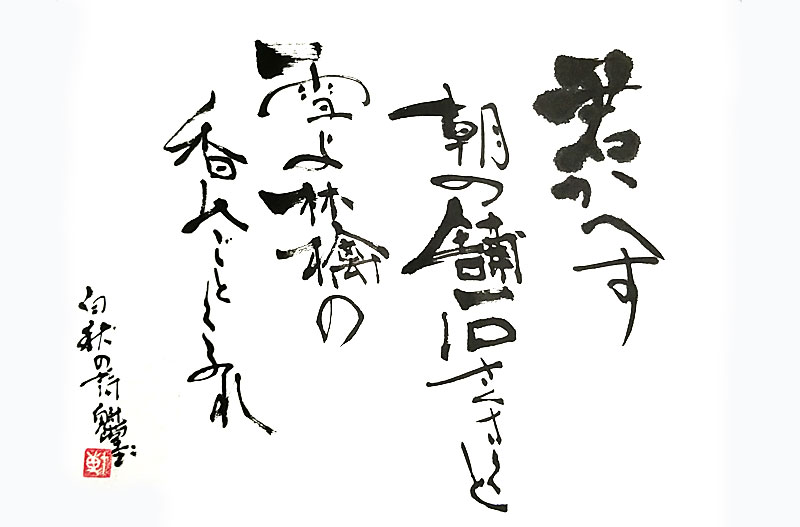 君かへす
朝の舗石さくさくと
雪よ林檎の
香のごとくふれ
白秋の詩